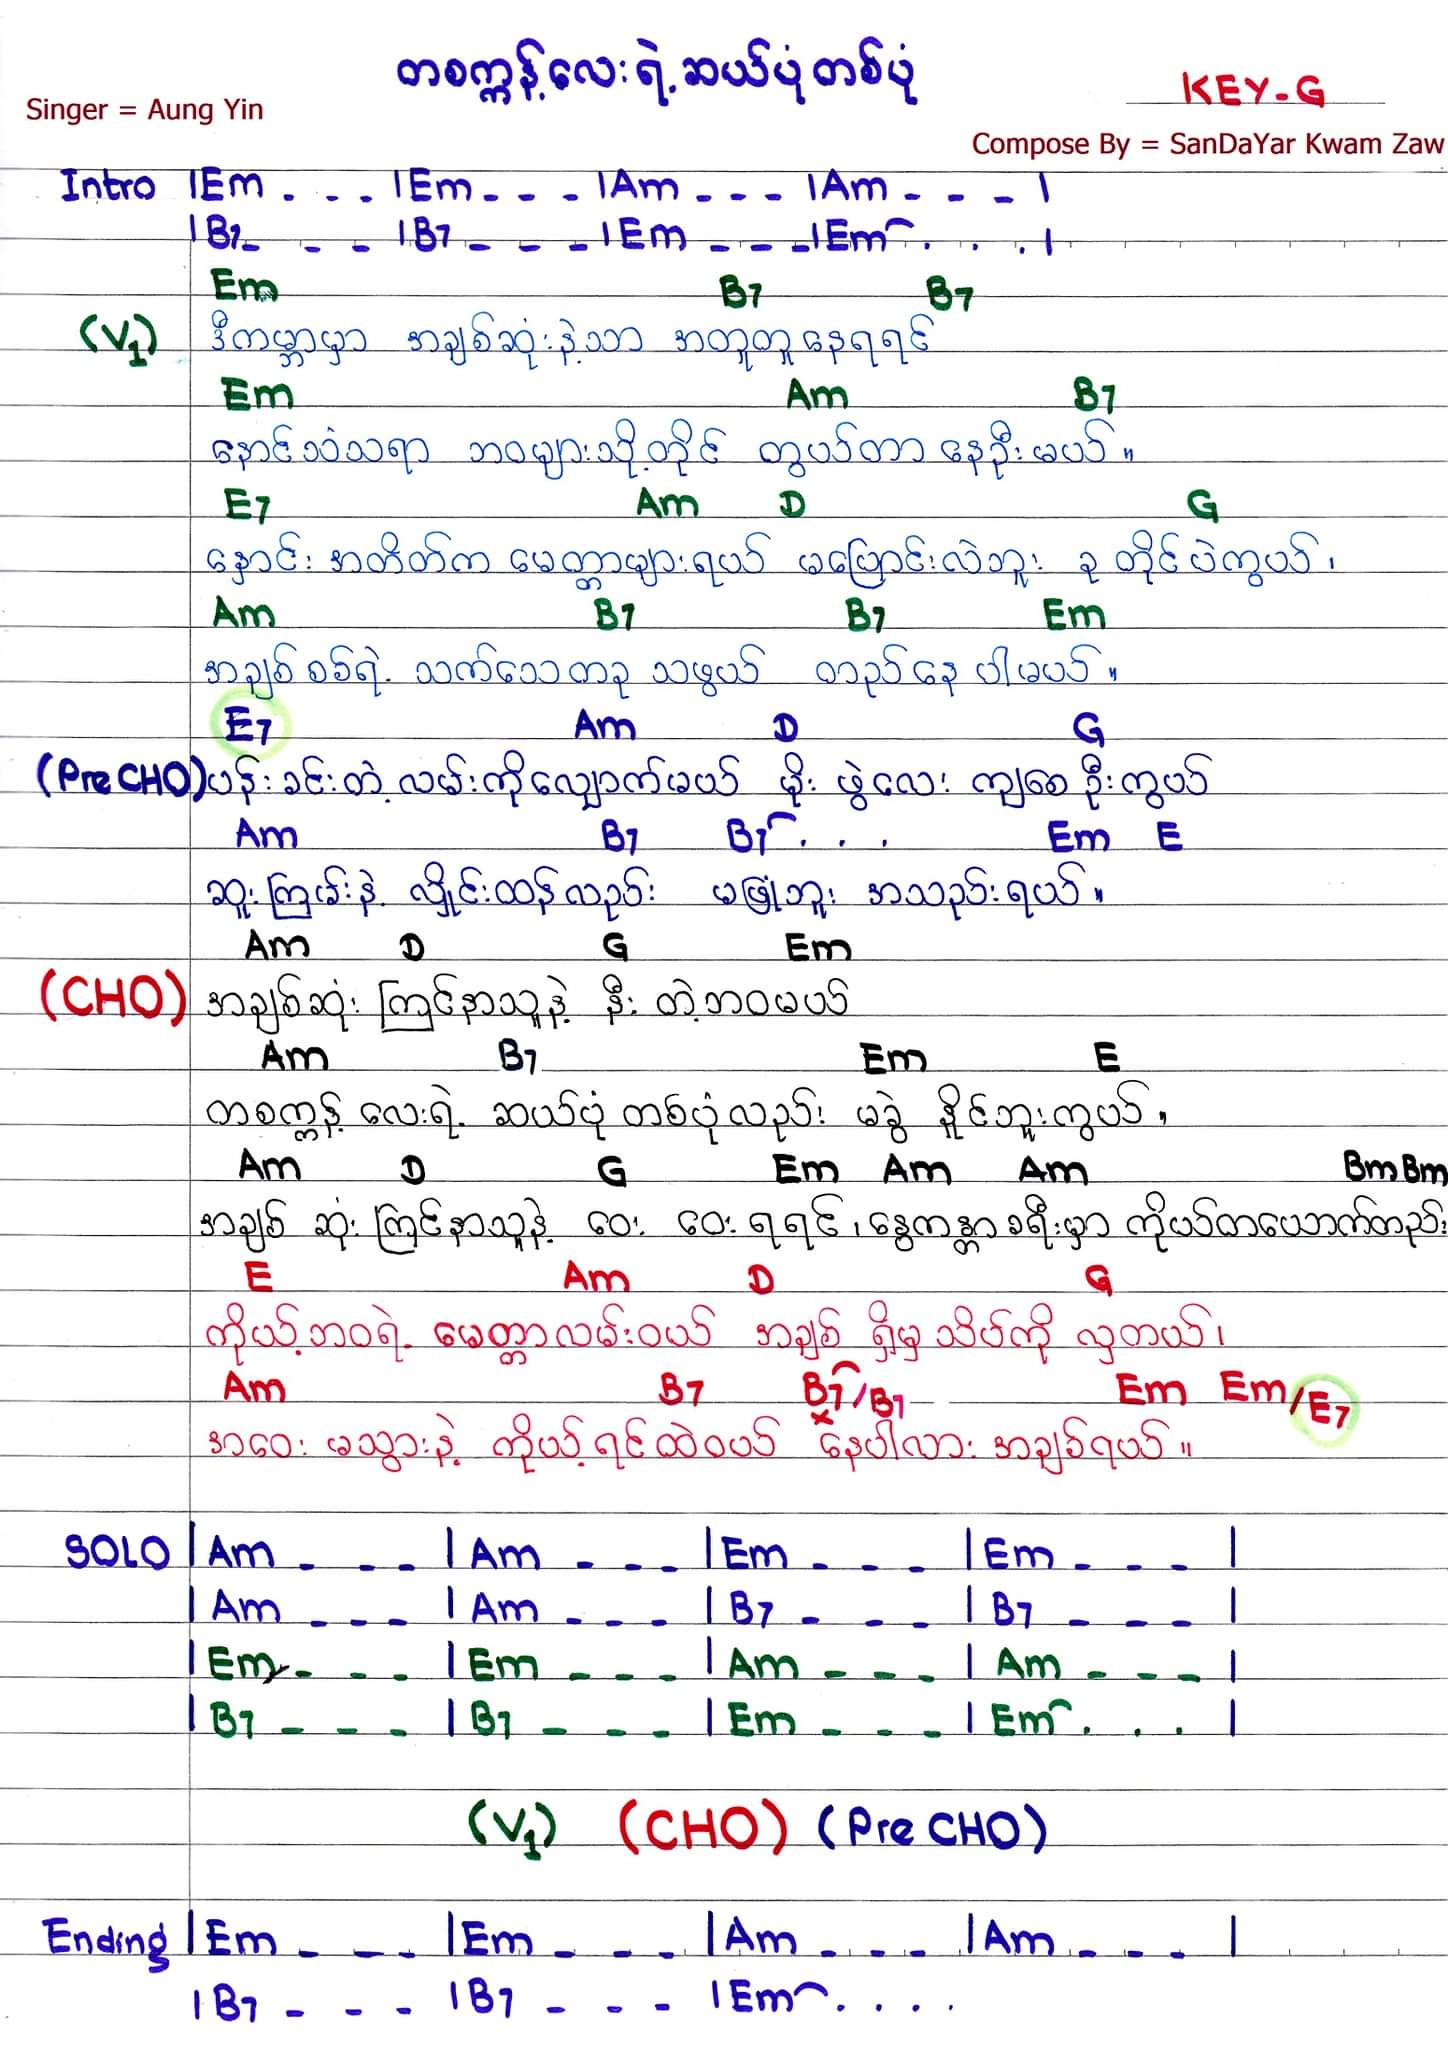 တစက္ကန့်လေးရဲ့ဆယ်ပုံတစ်ပုံ
KEY-G
Singer = Aung Yin
Compose By = SanDaYar Kwam Zaw
Intro |Em - - - |Em - - - |Am - - - |Am - - - |
|B7 - - - |B7 - - - |Em - - - |Em . . . |
Em B7 B7
(V1) ဒီကမ္ဘာမှာ အချစ်ဆုံးနဲ့သာ အတူတူနေရရင်
Em Am B7
နောင်သံသရာ ဘဝများသို့တိုင် တွယ်တာနေဦးမယ်။
E7 Am D G
နှောင်းအတိတ်က မေတ္တာများရယ် မပြောင်းလဲဘူး ခုတိုင်ပဲကွယ်၊
Am B7 B7 Em
အချစ်စစ်ရဲ့ သက်သေတခု သဖွယ် တည်နေပါမယ်။
E7 Am D G
(Pre CHO) ပန်းခင်းတဲ့လမ်းကိုလျှောက်မယ် မိုးဖွဲလေး ကျစေဦးကွယ်
Am B7 B7 . . . Em E
ဆူးကြမ်းနဲ့ လှိုင်းထန်လည်း မဖြုံဘူး အသည်းရယ်။
Am D G Em
(CHO) အချစ်ဆုံး ကြင်နာသူနဲ့ နီးတဲ့ဘဝမယ်
Am B7 Em E
တစက္ကန့်လေးရဲ့ ဆယ်ပုံတစ်ပုံလည်း မခွဲနိုင်ဘူးကွယ်၊
Am D G Em Am Am Bm Bm
အချစ်ဆုံး ကြင်နာသူနဲ့ ဝေးဝေးရရင်၊ နွေကန္တာခရီးမှာ ကိုယ်တယောက်တည်း
E Am D G
ကိုယ့်ဘဝရဲ့ မေတ္တာလမ်းဝယ် အချစ်ရှိမှ သိပ်ကိုလှတယ်၊
Am B7 B7/B7 Em Em/E7
အဝေးမသွားနဲ့ ကိုယ့်ရင်ထဲဝယ် နေပါလား အချစ်ရယ်။
SOLO |Am - - - |Am - - - |Em - - - |Em - - - |
|Am - - - |Am - - - |B7 - - - |B7 - - - |
|Em - - - |Em - - - |Am - - - |Am - - - |
|B7 - - - |B7 - - - |Em - - - |Em . . . |
(V1) (CHO) (Pre CHO)
Ending |Em - - - |Em - - - |Am - - - |Am - - - |
|B7 - - - |B7 - - - |Em . . . .